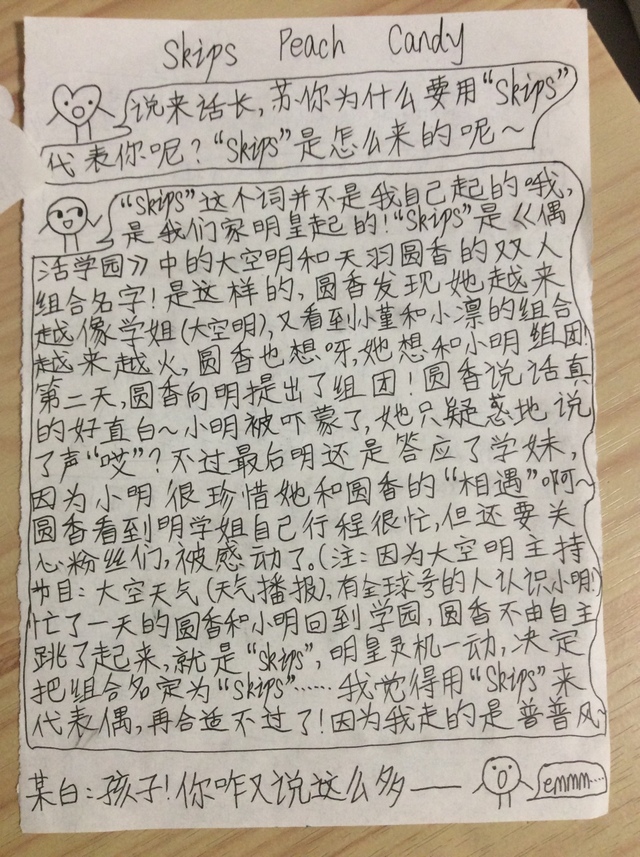 Skips Peach Candy
说来话长，苏你为什么要用“Skips”
代表你呢？“Skips”是怎么来的呢～
“Skips”这个词并不是我自己起的哦，
是我们家明皇起的！“Skips”是《偶
活学园》中的大空明和天羽圆香的双人
组合名字！是这样的，圆香发现她越来
越像学姐(大空明)，又看到小堇和小凛的组合
越来越火，圆香也想呀，她想和小明组团！
第二天，圆香向明提出了组团！圆香说话真
的好直白～小明被吓蒙了，她只疑惑地说
了声“哎”？不过最后明还是答应了学妹，
因为小明很珍惜她和圆香的“相遇”啊～
圆香看到明学姐自己行程很忙，但还要关
心粉丝们，被感动了。(注：因为大空明主持
节目：大空天气(天气播报)，有全球号的人认识小明！)
忙了一天的圆香和小明回到学园，圆香不由自主
跳了起来，就是“skips”，明皇灵机一动，决定
把组合名定为“Skips”……我觉得用“Skips”来
代表偶，再合适不过了！因为我走的是普普风～
某白：孩子！你咋又说这么多——
emmm…